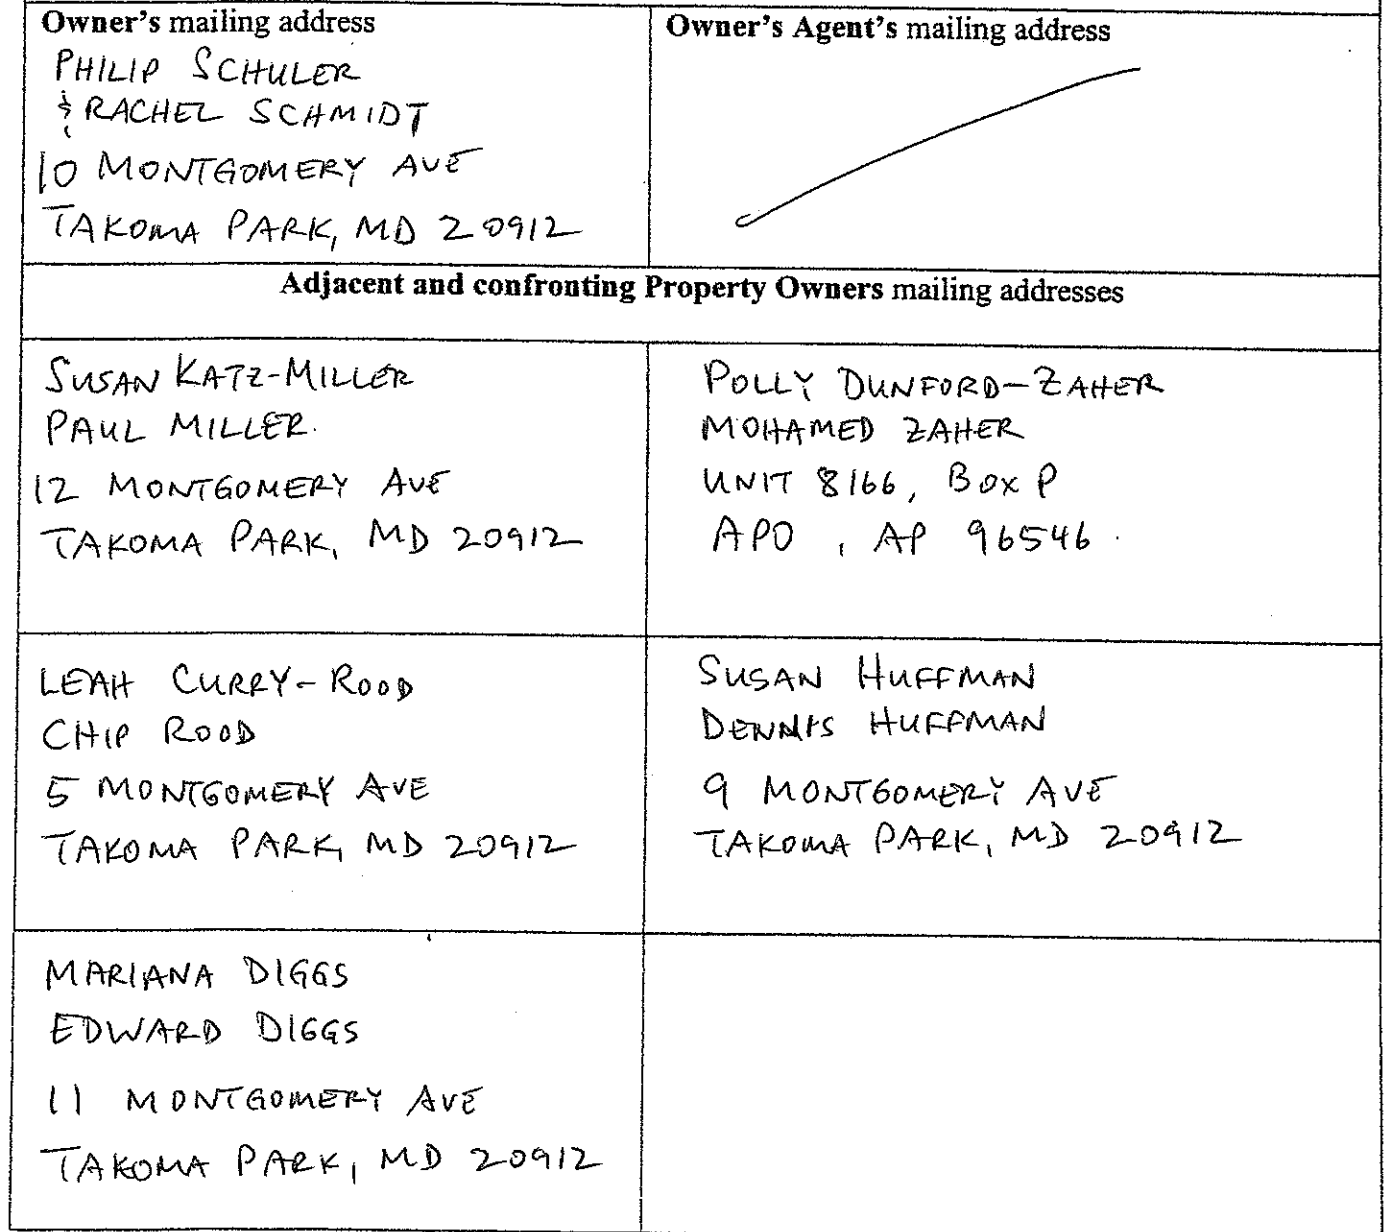 Owner's mailing address
PHILIP SCHULER
& RACHEL SCHMIDT
10 MONTGOMERY AVE
TAKOMA PARK, MD 20912
Owner's Agent's mailing address
Adjacent and confronting Property Owners mailing addresses
SUSAN KATZ-MILLER
PAUL MILLER.
12 MONTGOMERY AVE
TAKOMA PARK, MD 20912
POLLY DUNFORD-ZAHER
MOHAMED ZAHER
UNIT 8166, BOX P
APO, AP 96546
LEAH CURRY-ROOD
CHIP ROOD
5 MONTGOMERY AVE
TAKOMA PARK, MD 20912
SUSAN HUFFMAN
DENNIS HUFFMAN
9 MONTGOMERY AVE
TAKOMA PARK, MD 20912
MARIANA DIGGS
EDWARD DIGGS
11 MONTGOMERY AVE
TAKOMA PARK, MD 20912